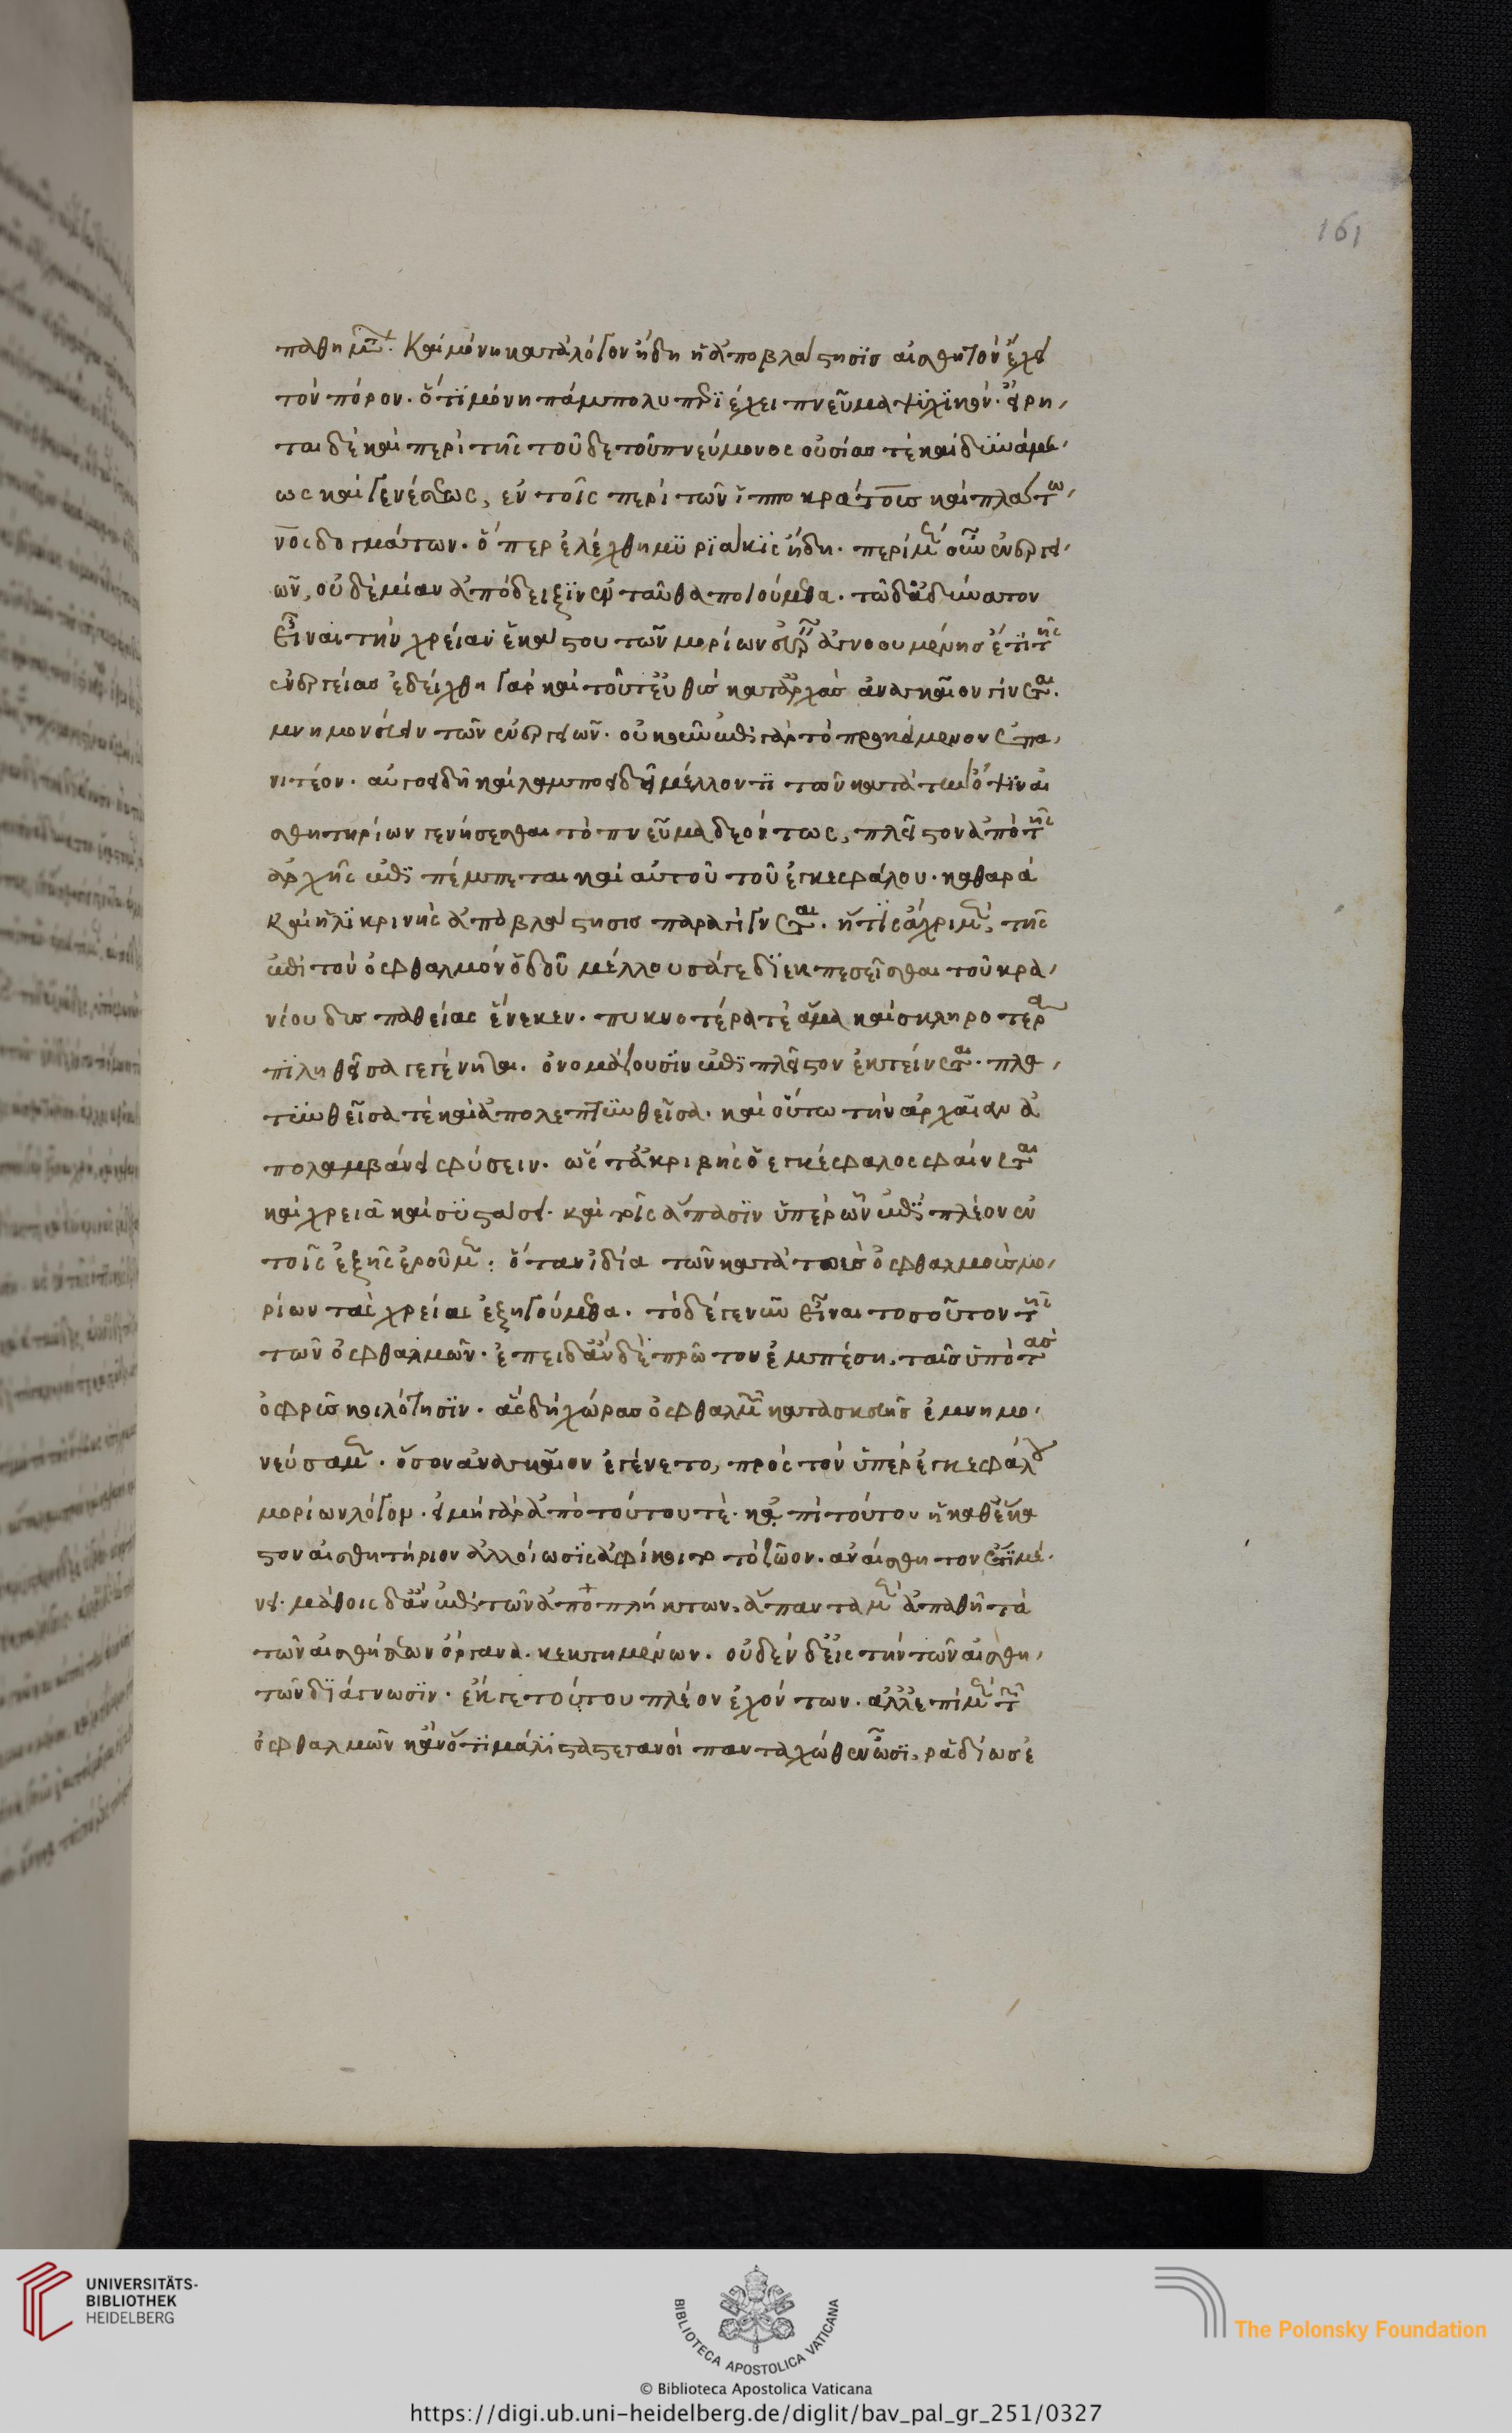 161
παθημάτων. Καὶ μόνη κατὰ λόγον ἤδη ἡ ἀποβλάστησις αἰσθητὸν ἔχει
τὸν πόρον. ὅτι μόνη πάμπολύ τι περιέχει πνεῦμα ψυχικόν. εἴρη
ται δὲ καὶ περὶ τῆς τοῦδε τοῦ πνεύμονος οὐσίας τὲ καὶ δυνάμε
ως καὶ γενέσεως, ἐν τοῖς περὶ τῶν ἱπποκράτους καὶ πλάτω
νος δογμάτων. ὅπερ ἐλέχθη μυριάκις ἤδη. περὶ μὲν οὖν ἐνεργει
ῶν, οὐδεμίαν ἀπόδειξιν ἐνταῦθα ποιούμεθα. τῶ δ' ἀδύνατον
εἶναι τὴν χρείαν ἑκάστου τῶν μορίων εὑρεῖν ἀγνοουμένης ἔτι τῆς
ἐνεργείας ἐδείχθη γὰρ καὶ τοῦτ' εὐθὺς κατ' ἀρχὰς ἀναγκαῖον γίνεται
μνημονεύειν τῶν ἐνεργειῶν. οὐκοῦν ἐπὶ γὰρ τὸ προκείμενον ἐπα
νιτέον. αὐγοειδῆ καὶ λαμποειδῆ μέλλοντι τῶν κατὰ τὴν ὄψιν αἰ
σθητηρίων γενήσεσθαι τὸ πνεῦμα δεόντως, πλεῖστον ἀπὸ τῆς
ἀρχῆς ἐπιπέμπεται καὶ αὐτοῦ τοῦ ἐγκεφάλου. καθαρὰ
καὶ ἠλικρινὴς ἀποβλάστησις παραγίγνεται. ἥτις ἄχρι μὲν τῆς
ἐπὶ τὸν ὀφθαλμὸν ὁδοῦ μέλλουσά γε διεκπεσεῖσθαι τοῦ κρα
νίου δυσπαθείας ἕνεκεν. πυκνοτέρα τὲ ἅμα καὶ σκληροτέρα
πιληθεῖσα γεγένηται. ὀνομάζουσιν ἐπὶ πλεῖστον ἐκτείνεται. πλα
τυνθεῖσα τὲ καὶ ἀπολεπτυνθεῖσα. καὶ οὕτω τὴν ἀρχαῖαν ἀ
πολαμβάνει φύσειν. ὥστ' ἀκριβὴς ὁ ἐγκέφαλος φαίνεται
καὶ χρειᾶ καὶ συστάσει. καὶ τοῖς ἅπασιν ὑπὲρ ὧν ἐπιπλέον ἐν
τοῖς ἐξῆς ἐροῦμεν. ὅταν ἰδία τῶν κατὰ τοὺς ὀφθαλμοὺς μο
ρίων τὰς χρείας ἐξηγούμεθα. τὸ δέ γε νῦν εἶναι τοσοῦτον τῆς
τῶν ὀφθαλμῶν. ἐπειδὰν δὲ πρῶτον ἐμπέση, ταῖς ὑπὸ τὰς
ὀφρῦς κοιλότησιν. ἃς δὴ χώρας ὀφθαλμῶν κατασκευῆς ἐμνημο
νεύσαμεν. ὅσον ἀναγκαῖον ἐγένετο, πρὸς τὸν ὑπὲρ ἐγκεφάλου
μορίων λόγον. εἰ μὴ γὰρ ἀπὸ τούτου τὲ. κἀπὶ τούτου ἡ καθ' ἕκα
στον αἰσθητήριον ἀλλοίωσις ἀφίκοιτο τὸ ζῶον. ἀναίσθητον ἔτι μέ
νει. μάθοις δ' ἂν ἐπὶ τῶν ἀποπλήκτων, ἅπαντα μὲν ἀπαθῆ τὰ
τῶν αἰσθήσεων ὄργανα. κεκτημένων. οὐδὲν δ' εἰς τὴν τῶν αἰσθη
τῶν διάγνωσιν. ἔκ γε τούτου πλέον ἐχόντων. ἀλλ' ἐπὶ μὲν τῶν
ὀφθαλμῶν κἂν ὅτι μάλιστα στεγανοὶ πανταχόθεν ὦσι, ραδίως ἐ
UNIVERSITÄTS-
BIBLIOTHEK
HEIDELBERG
BIBLIOTECA APOSTOLICA VATICANA
The Polonsky Foundation
© Biblioteca Apostolica Vaticana
https://digi.ub.uni-heidelberg.de/diglit/bav_pal_gr_251/0327